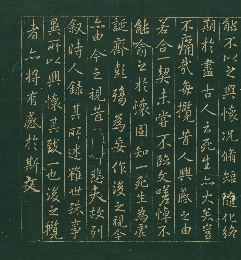 能不以之興懷況脩短隨化終
期於盡古人云死生亦大矣豈
不痛哉每攬昔人興感之由
若合一契未嘗不臨文嗟悼不
能喻之於懷固知一死生為虛
誕齊彭殤為妄作後之視今
亦由今之視昔 悲夫故列
敘時人錄其所述雖世殊事
異所以興懷其致一也後之攬
者亦將有感於斯文